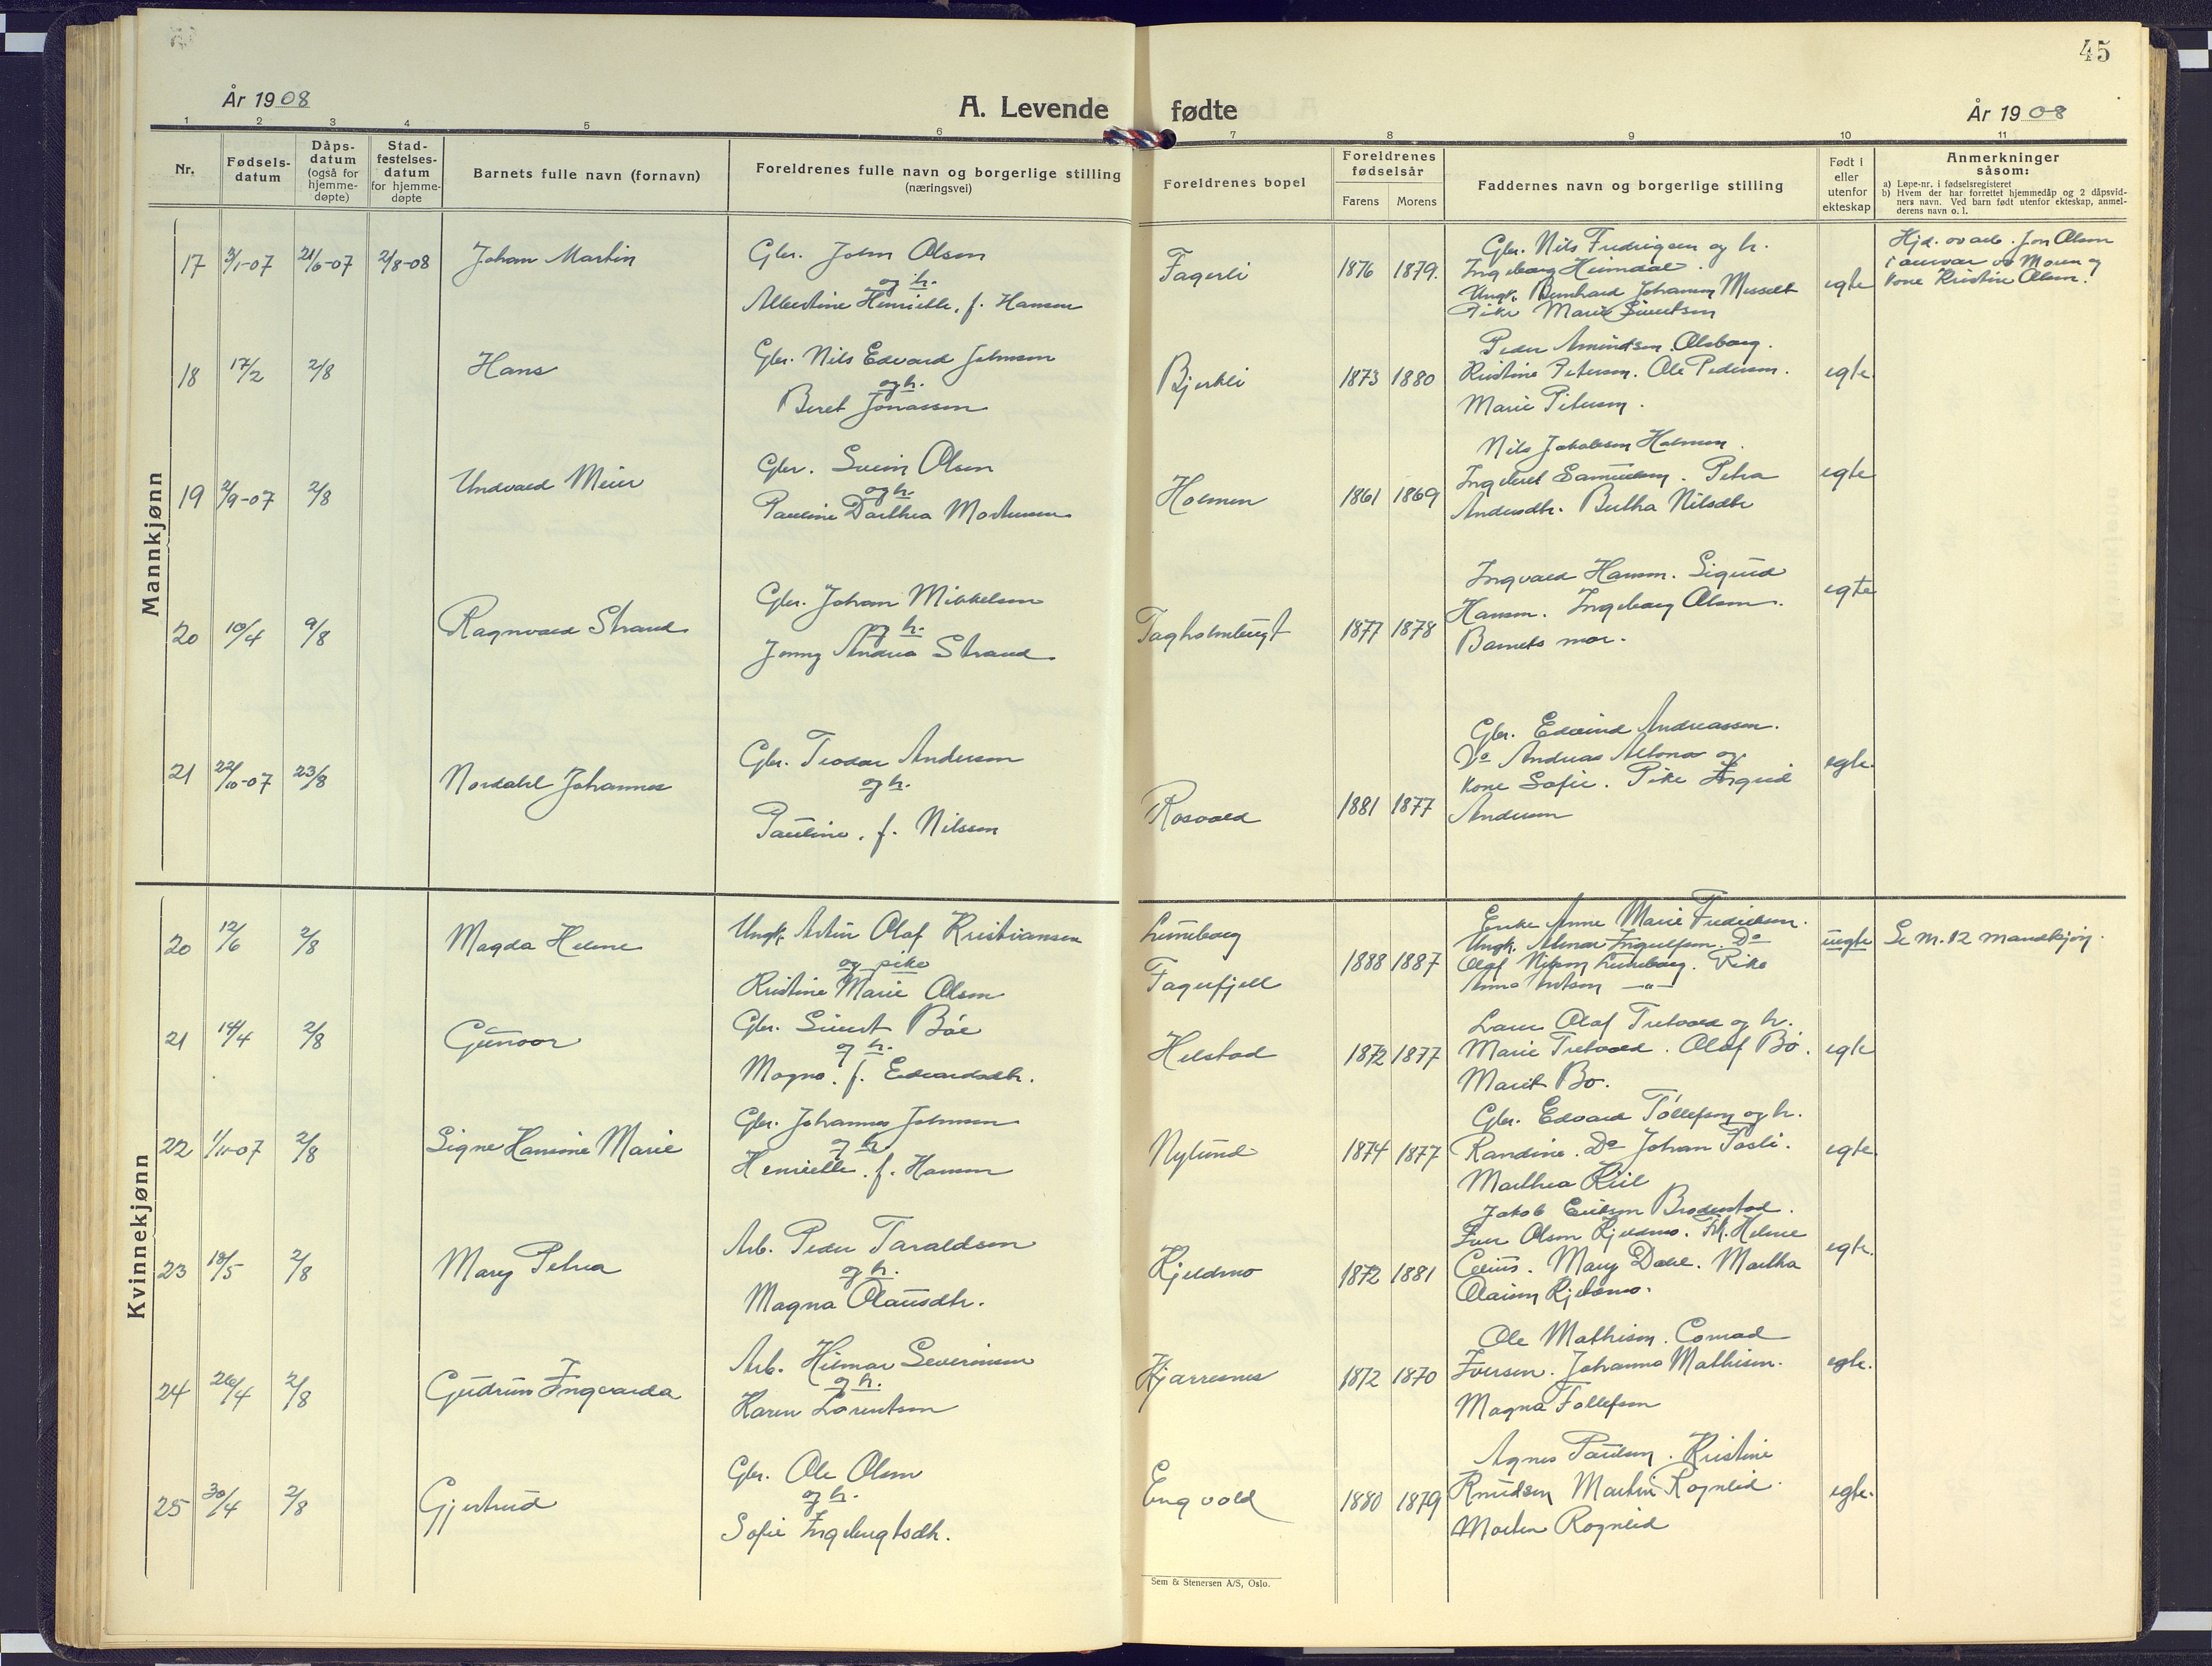 45
År 1908
A. Levende fødte
År 1908
1 2 3 4 5 6 7 8 9 10 11
Nr.
Fødsels-datum
Dåps-datum (også for hjemme-døpte)
Stad-festelses-datum for hjemme-døpte
Barnets fulle navn (fornavn)
Foreldrenes fulle navn og borgerlige stilling (næringsvei)
Foreldrenes bopel
Foreldrenes fødselsår
Farens Morens
Faddernes navn og borgerlige stilling
Født i eller utenfor ekteskap
Anmerkninger såsom:
a) Løpe-nr. i fødselsregisteret
b) Hvem der har forrettet hjemmedåp og 2 dåpsvid-
ners navn. Ved barn født utenfor ekteskap, anmel-
derens navn o. l.
Mannkjønn
17 3/1-07 21/6-07 2/8-08 Johan Martin
Gbr. John Olsen
og h.
Albertine Henriette, f. Hansen
Fagerli 1876 1879.
Gbr. Nils Fredrigsen og h.
Ingeborg Heimdal.
Ungk. Bernhard Johansen
Pike Marie Sivertsen
egte
Jon Olsen
kone Kristine Olsen.
18 17/2 2/8 Hans
Gbr. Nils Edvard Johnsen
og h.
Beret Jonassen
Bjerkli 1873 1880
Peder Amundsen Olsborg.
Kristine Petersen. Ole Pedersen.
Marie Petersen.
egte.
19 2/9-07 2/8 Undvald Meier
Gbr. Svein Olsen
og h.
Pauline Dorthea Mortensen
Holmen 1861 1869
Nils Jakobsen Holmen.
Ingebret Samuelsen. Petra
Andersdtr. Bertha Nilsdtr
egte
20 10/4 9/8 Ragnvald Strand
Gbr. Johan Mikkelsen
og h.
Jenny Andrea Strand
1877 1878
Ingvald Hansen. Sigurd
Hansen. Ingeborg Olsen.
Barnets mor.
egte
21 22/10-07 23/8 Nordahl Johannes
Gbr. Teodor Andersen
og h.
Pauline, f. Nilssen
Rosvold 1881 1877
Gbr. Edvind Andreassen.
Do Andreas Altona og
kone Sofie. Pike Ingrid
Andersen
egte.
Kvinnekjønn
20 12/6 2/8 Magda Helene
Ungk. Artur Olaf Kristiansen
og pike
Kristine Marie Olsen
Luneborg
Fagerfjell
1888 1887
Enke Anne Marie Fredriksen.
Ungk. Almar Ingulfsen. Do
Olaf Nilsen Luneborg. Pike
Anna
uegte
Se M. 12 mandkjøn.
21 14/4 2/8 Gunvor
Gbr. Sivert Böe
og h.
Magna. f. Edvardsdtr.
Helstad 1872 1877
Lars Olaf Tretvold og h.
Marie Tretvold. Olaf Bö.
Marit Bö.
egte
22 1/11-07 2/8 Signe Hansine Marie
Gbr. Johannes Johnsen
og h.
Henriette. f. Hansen
Nylund 1874 1877
Gbr. Edvard Tollefsen og h.
Randine. Do Johan Fosli.
Marthea Kiil
egte.
23 18/5 2/8 Mary Petrea
Arb. Peder Taraldsen
og h.
Magna Olausdtr.
Kjeldmo 1872 1881
Jakob Eriksen Brodenstad.
Iver Olsen Kjeldmo. Frk. Helene
Mary Dahl. Martha
Olausen Kjeldmo.
egte.
24 26/4 2/8 Gudrun Ingvarda
Arb. Hilmar Severinsen
og h.
Karen Lorentsen
Kjarresnes 1872 1870
Ole Mathisen. Conrad
Iversen. Johanna Mathisen.
Magna Tollefsen
egte.
25 30/4 2/8 Gjertrud
Gbr. Ole Olsen
og h.
Sofie Ingebrigtsdtr.
Engvold 1880 1879
Agnes Paulsen. Kristine
Knudsen Martin Rognlid.
Morten Rognlid
egte.
Sem & Stenersen A/S, Oslo.